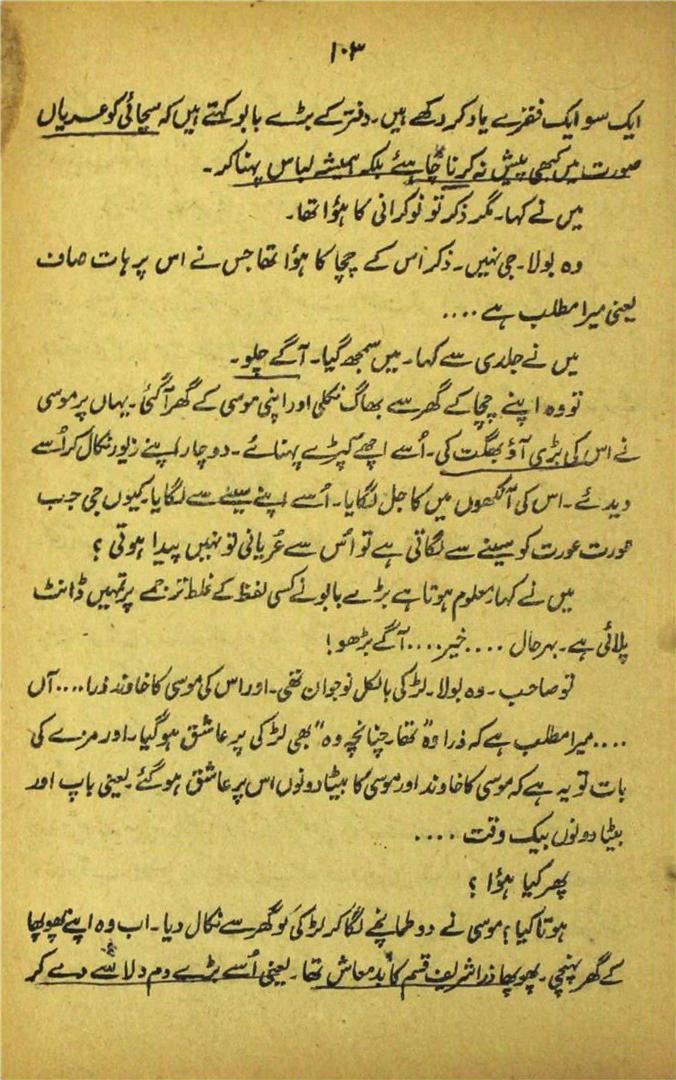 ۱۰۳
ایک سو ایک فقرے یاد کر رکھے ہیں۔ دفتر کے بڑے بابو کہتے ہیں کہ سچائی کو عریاں
صورت میں کبھی پیش نہ کرنا چاہئے بلکہ ہمیشہ لباس پہنا کر۔
میں نے کہا۔ مگر ذکر تو نوکرانی کا ہؤا تھا۔
وہ بولا۔ جی نہیں۔ ذکر اُس کے چچا کا ہؤا تھا جس نے اس پر ہات صاف
یعنی میرا مطلب ہے ....
میں نے جلدی سے کہا۔ میں سمجھ گیا۔ آگے چلو۔
تو وہ اپنے چچا کے گھر سے بھاگ نکلی اور اپنی موسی کے گھر آ گئی۔ یہاں پر موسی
نے اس کی بڑی آؤ بھگت کی۔ اُسے اچھے کپڑے پہنائے۔ دو چار اپنے زیور نکال کر اُسے
دیدئے۔ اس کی آنکھوں میں کاجل لگایا۔ اُسے اپنے سینے سے لگایا۔ کیوں جی جب
عورت عورت کو سینے سے لگاتی ہے تو اُس سے عُریانی تو نہیں پیدا ہوتی ؟
میں نے کہا۔ معلوم ہوتا ہے بڑے بابو نے کسی لفظ کے غلط ترجمے پر تمہیں ڈانٹ
پلائی ہے۔ بہرحال .... خیر .... آگے بڑھو!
تو صاحب۔ وہ بولا۔ لڑکی بالکل نوجوان تھی۔ اور اس کی موسی کا خاوند ذرا .... آں
.... میرا مطلب ہے کہ ذرا "وہ" تھا۔ چنانچہ "وہ" بھی لڑکی پر عاشق ہو گیا۔ اور مزے کی
بات تو یہ ہے کہ موسی کا خاوند اور موسی کا بیٹا دونوں اس پر عاشق ہو گئے۔ یعنی باپ اور
بیٹا دونوں بیک وقت ....
پھر کیا ہؤا ؟
ہوتا کیا؟ موسی نے دو طمانچے لگا کر لڑکی کو گھر سے نکال دیا۔ اب وہ اپنے پھوپھا
کے گھر پہنچی۔ پھوپھا ذرا شریف قسم کا بدمعاش تھا۔ یعنی اُسے بڑے دم دلاسے دے کر